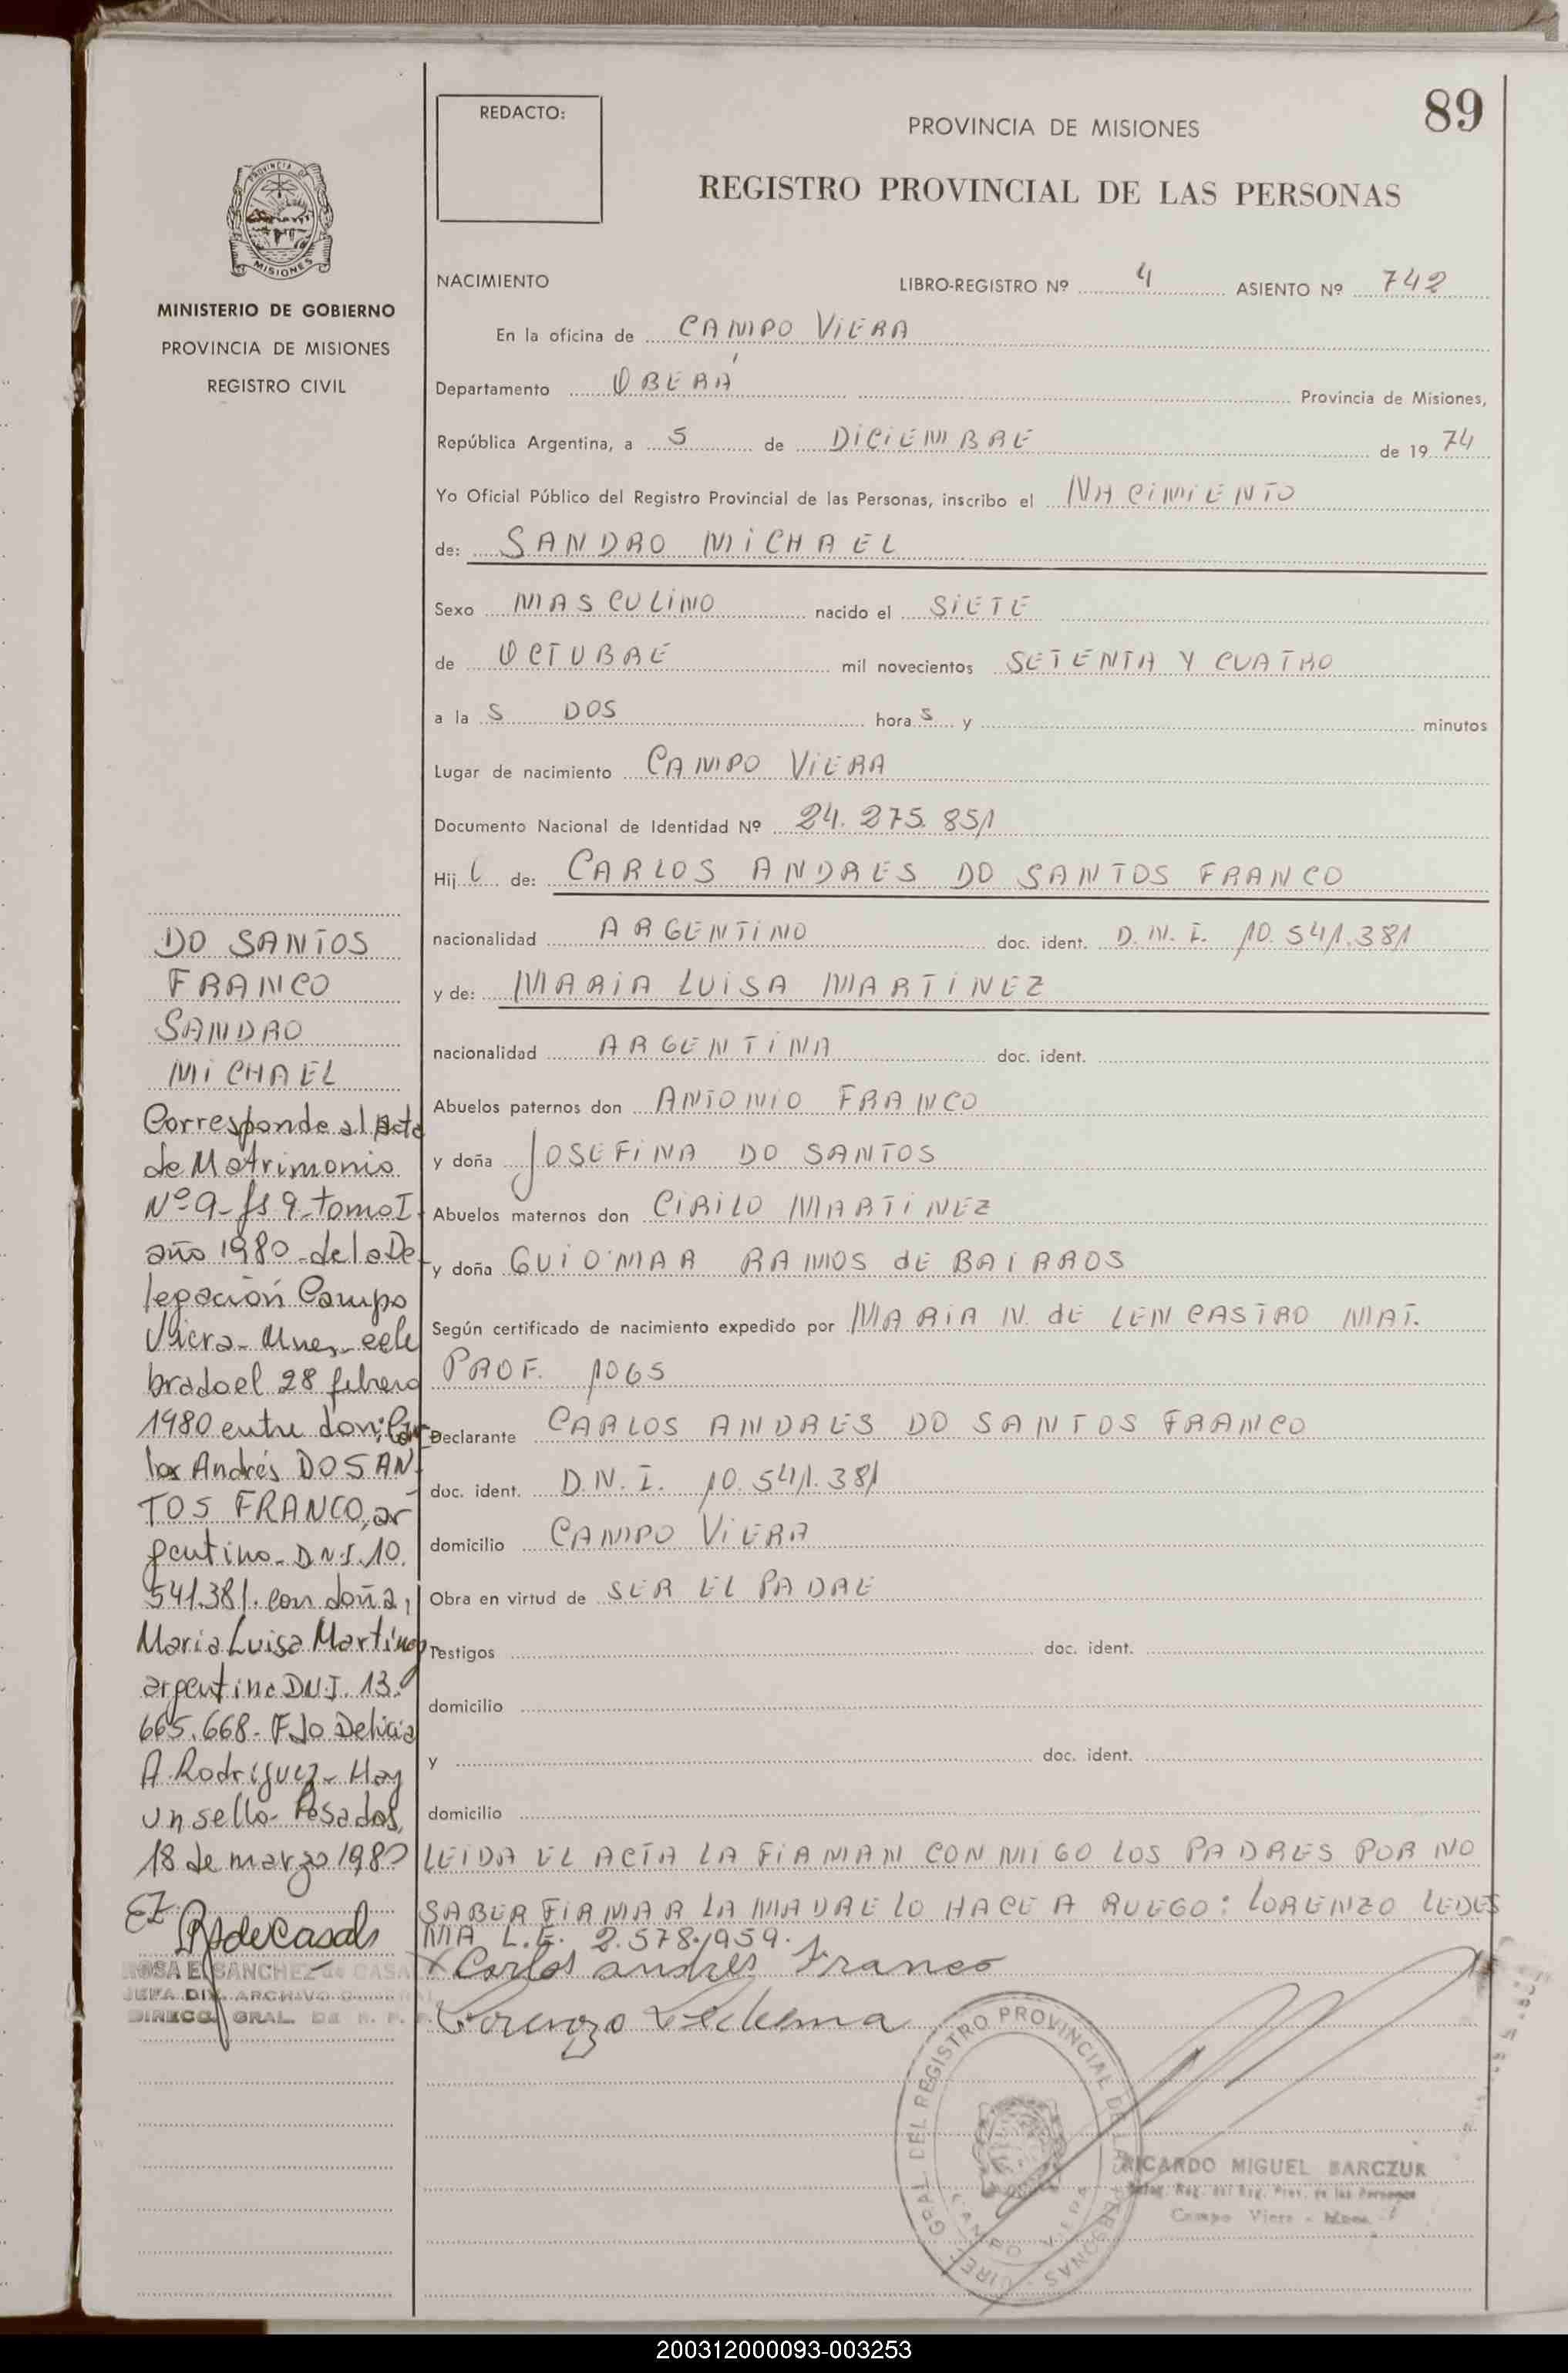 89
REDACTO:
PROVINCIA DE MISIONES
REGISTRO PROVINCIAL DE LAS PERSONAS
PROVINCIA DE
MISIONES
MINISTERIO DE GOBIERNO
PROVINCIA DE MISIONES
REGISTRO CIVIL
NACIMIENTO LIBRO-REGISTRO Nº 4 ASIENTO Nº 742
En la oficina de CAMPO VIERA
Departamento OBERÁ Provincia de Misiones,
República Argentina, a 5 de DICIEMBRE de 19 74
Yo Oficial Público del Registro Provincial de las Personas, inscribo el NACIMIENTO
de: SANDRO MICHAEL
Sexo MASCULINO nacido el SIETE
de OCTUBRE mil novecientos SETENTA Y CUATRO
a la S DOS hora S y minutos
Lugar de nacimiento CAMPO VIERA
Documento Nacional de Identidad Nº 24.275.851
Hij de: CARLOS ANDRES DO SANTOS FRANCO
nacionalidad ARGENTINO doc. ident. D.N.I. 10.541.381
y de: MARIA LUISA MARTINEZ
nacionalidad ARGENTINA doc. ident.
Abuelos paternos don ANTONIO FRANCO
y doña JOSEFINA DO SANTOS
Abuelos maternos don CIRILO MARTINEZ
y doña GUIOMAR RAMOS de BAIRROS
Según certificado de nacimiento expedido por MARIA N. de LENCASTRO MAT.
PROF. 1065
Declarante CARLOS ANDRES DO SANTOS FRANCO
doc. ident. D.N.I. 10.541.381
domicilio CAMPO VIERA
Obra en virtud de SER EL PADRE
Testigos doc. ident.
domicilio
y doc. ident.
domicilio
LEIDA EL ACTA LA FIRMAN CONMIGO LOS PADRES POR NO
SABER FIRMAR LA MADRE LO HACE A RUEGO: LORENZO LEDES
MA L.E. 2.578.959.
x Carlos andres Franco
Lorenzo Ledesma
DO SANTOS
FRANCO
SANDRO
MICHAEL
Corresponde al Acta
de Matrimonio
Nº 9- fs 9- tomo I
año 1980- de la De
legación Campo
Viera- Mnes- cele
brado el 28 febrero
1980 entre don: Car
los Andrés DO SAN
TOS FRANCO, ar
gentino- D.N.I. 10.
541.381. con doña,
Maria Luisa Martinez
argentina D.N.I. 13.
665.668- FDO Delicia
A. Rodriguez- Hay
un sello- Posadas,
18 de marzo 1980
RSdeCasals
ROSA E. SANCHEZ de CASA
JEFA DIV. ARCHIVO GENERAL
DIRECC. GRAL. DE R. P.
DIREC. GRAL. DEL REGISTRO PROVINCIAL DE LAS PERSONAS
CAMPO VIERA
RICARDO MIGUEL BARCZUK
Deleg. Reg. del Reg. Prov. de las Personas
Campo Viera - Mnes.
200312000093-003253